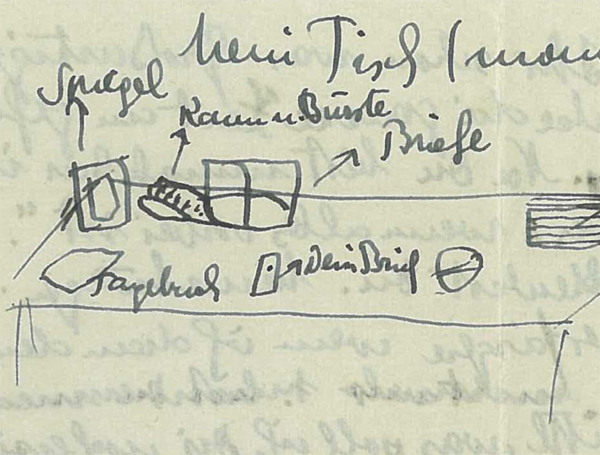 Mein Tisch (mom
Spiegel
Kamm u. Bürste
Briefe
Tagebuch
Dein Brief